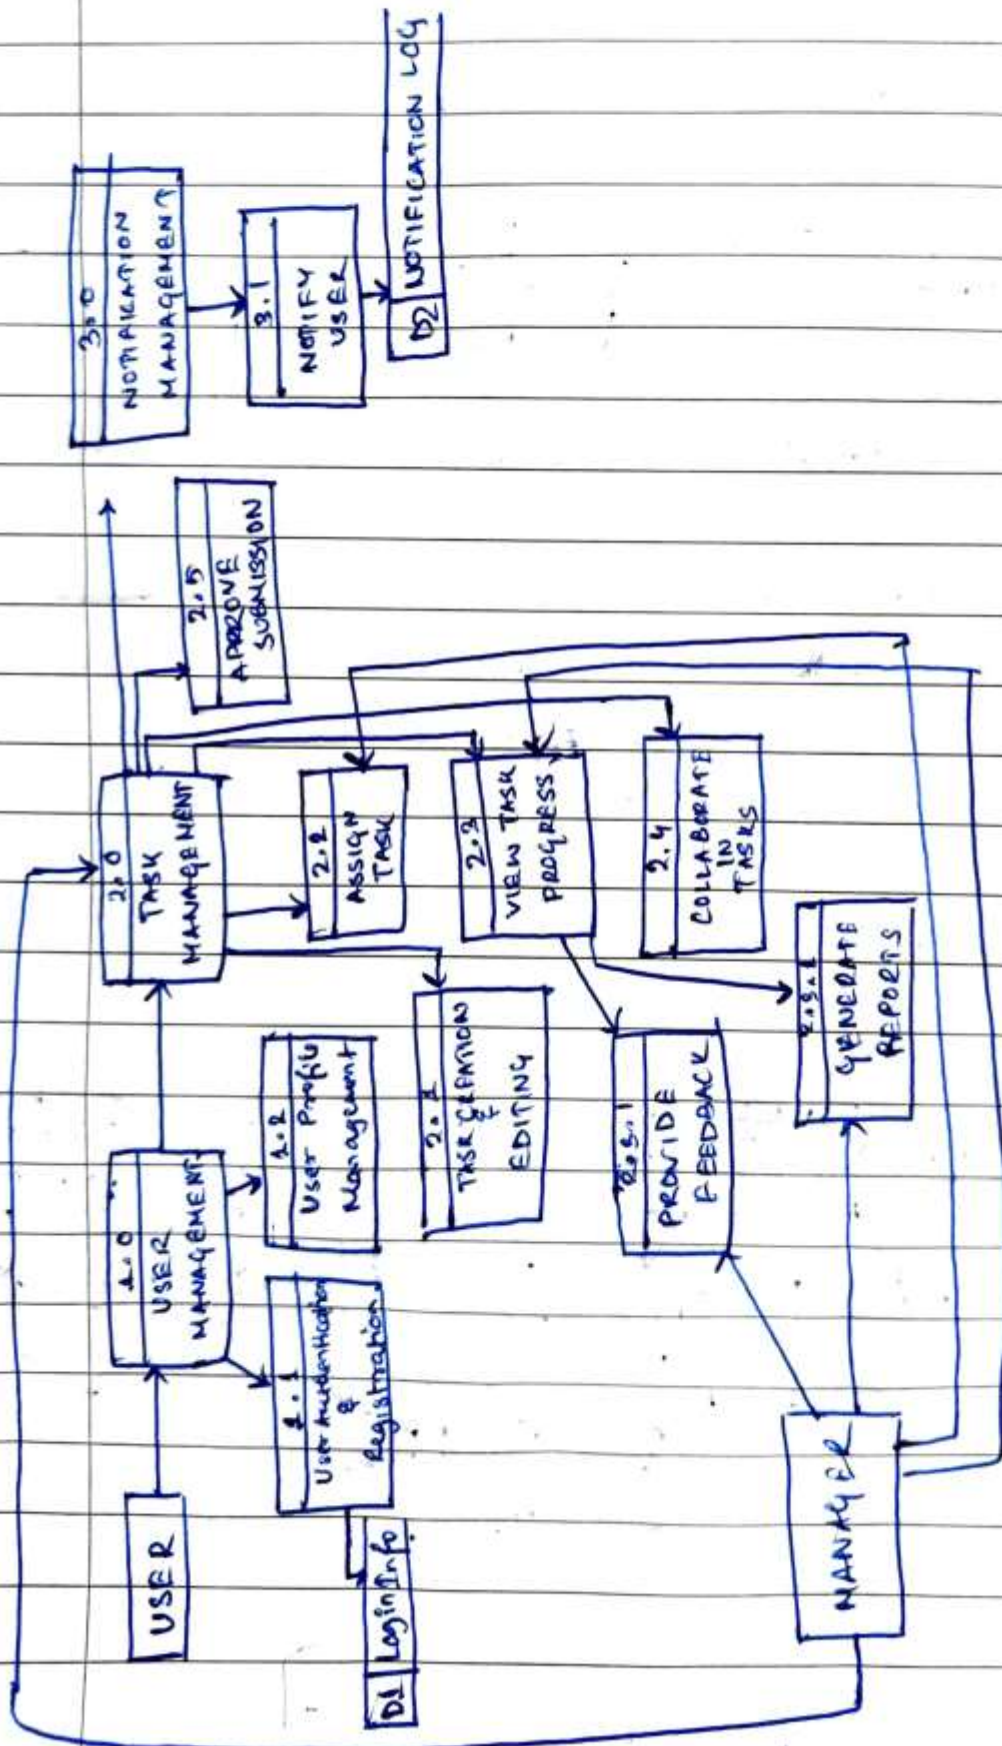 USER
1.0
USER
MANAGEMENT
1.1
User Authentication
&
Registration
D1 Login Info
1.2
User Profile
Management
2.0
TASK
MANAGEMENT
2.1
TASK CREATION
&
EDITING
2.2
ASSIGN
TASK
2.3
VIEW TASK
PROGRESS
2.4
COLLABORATE
IN
TASKS
2.5
APPROVE
SUBMISSION
2.3.1
PROVIDE
FEEDBACK
2.3.2
GENERATE
REPORTS
MANAGER
3.0
NOTIFICATION
MANAGEMENT
3.1
NOTIFY
USER
D2 NOTIFICATION LOG